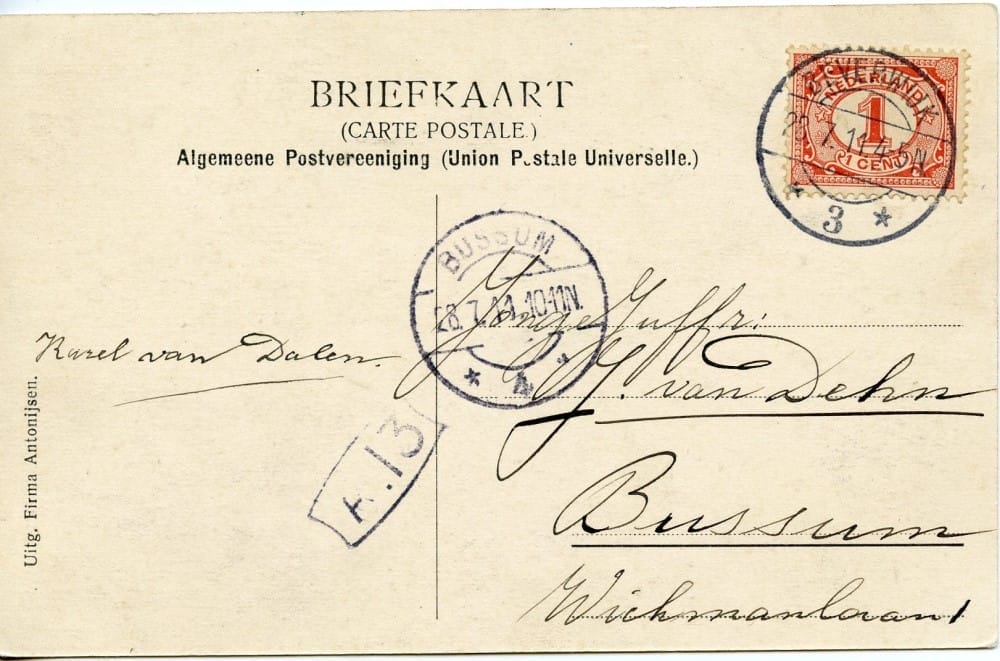 BRIEFKAART
(CARTE POSTALE.)
Algemeene Postvereeniging (Union Postale Universelle.)
BEVERWIJK
28.7.11.4-5N
* 3 *
NEDERLAND
1
1 CENT
BUSSUM
28.7.11.10-11N.
* 4 *
Jonge Juffr:
J. van Dehn
Bussum
Wichmanlaan 1
Karel van Dalen.
.13
Uitg. Firma Antonijsen.